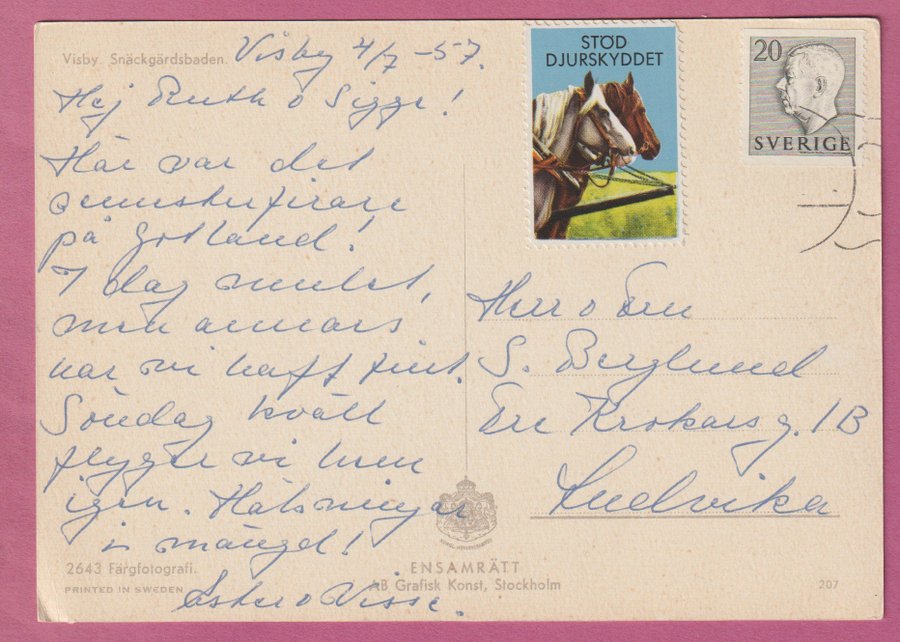 Visby. Snäckgärdsbaden.
Visby 4/7 -57.
Hej Ruth o Sigge!
Här var det
på Gotland!
I dag mulet,
men annars
har vi haft fint.
Söndag kväll
flyger vi hem
igen. Hälsningar
i mängd!
Ester o Visse.
2643 Färgfotografi.
PRINTED IN SWEDEN
STÖD
DJURSKYDDET
20
SVERIGE
Herr o Fru
S. Berglund
Krokars g. 1B
Ludvika
ENSAMRÄTT
AB Grafisk Konst, Stockholm
207